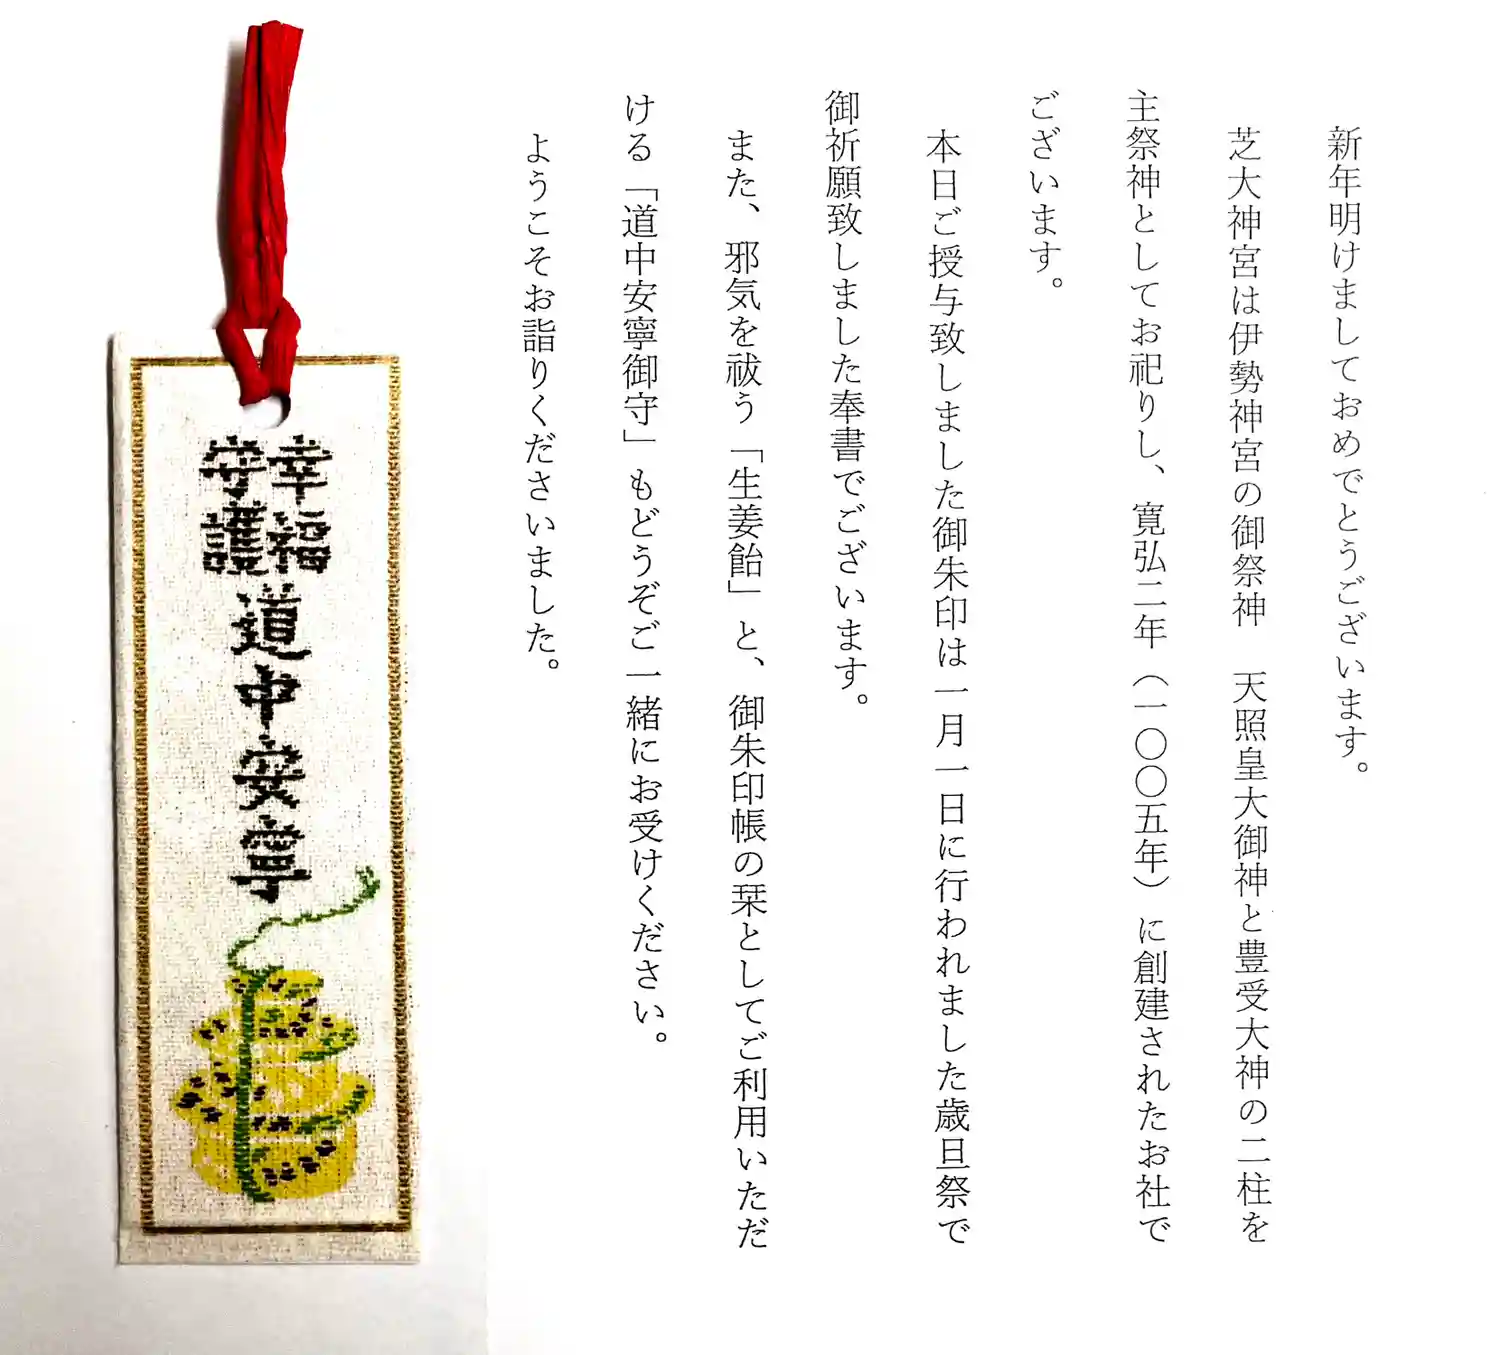 新年明けましておめでとうございます。
芝大神宮は伊勢神宮の御祭神　天照皇大御神と豊受大神の二柱を
主祭神としてお祀りし、寛弘二年（一〇〇五年）に創建されたお社で
ございます。
本日ご授与致しました御朱印は一月一日に行われました歳旦祭で
御祈願致しました奉書でございます。
また、邪気を祓う「生姜飴」と、御朱印帳の栞としてご利用いただ
ける「道中安寧御守」もどうぞご一緒にお受けください。
ようこそお詣りくださいました。
幸福
守護
道中安寧